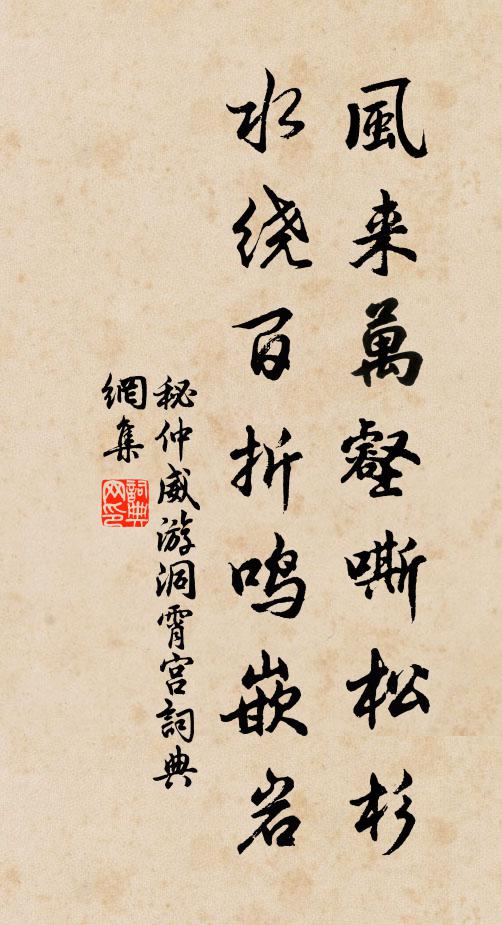 風来萬壑嘶松杉
水绕百折鸣嵌岩
秘仲威游洞霄宫詞典
網集
詞典
网印